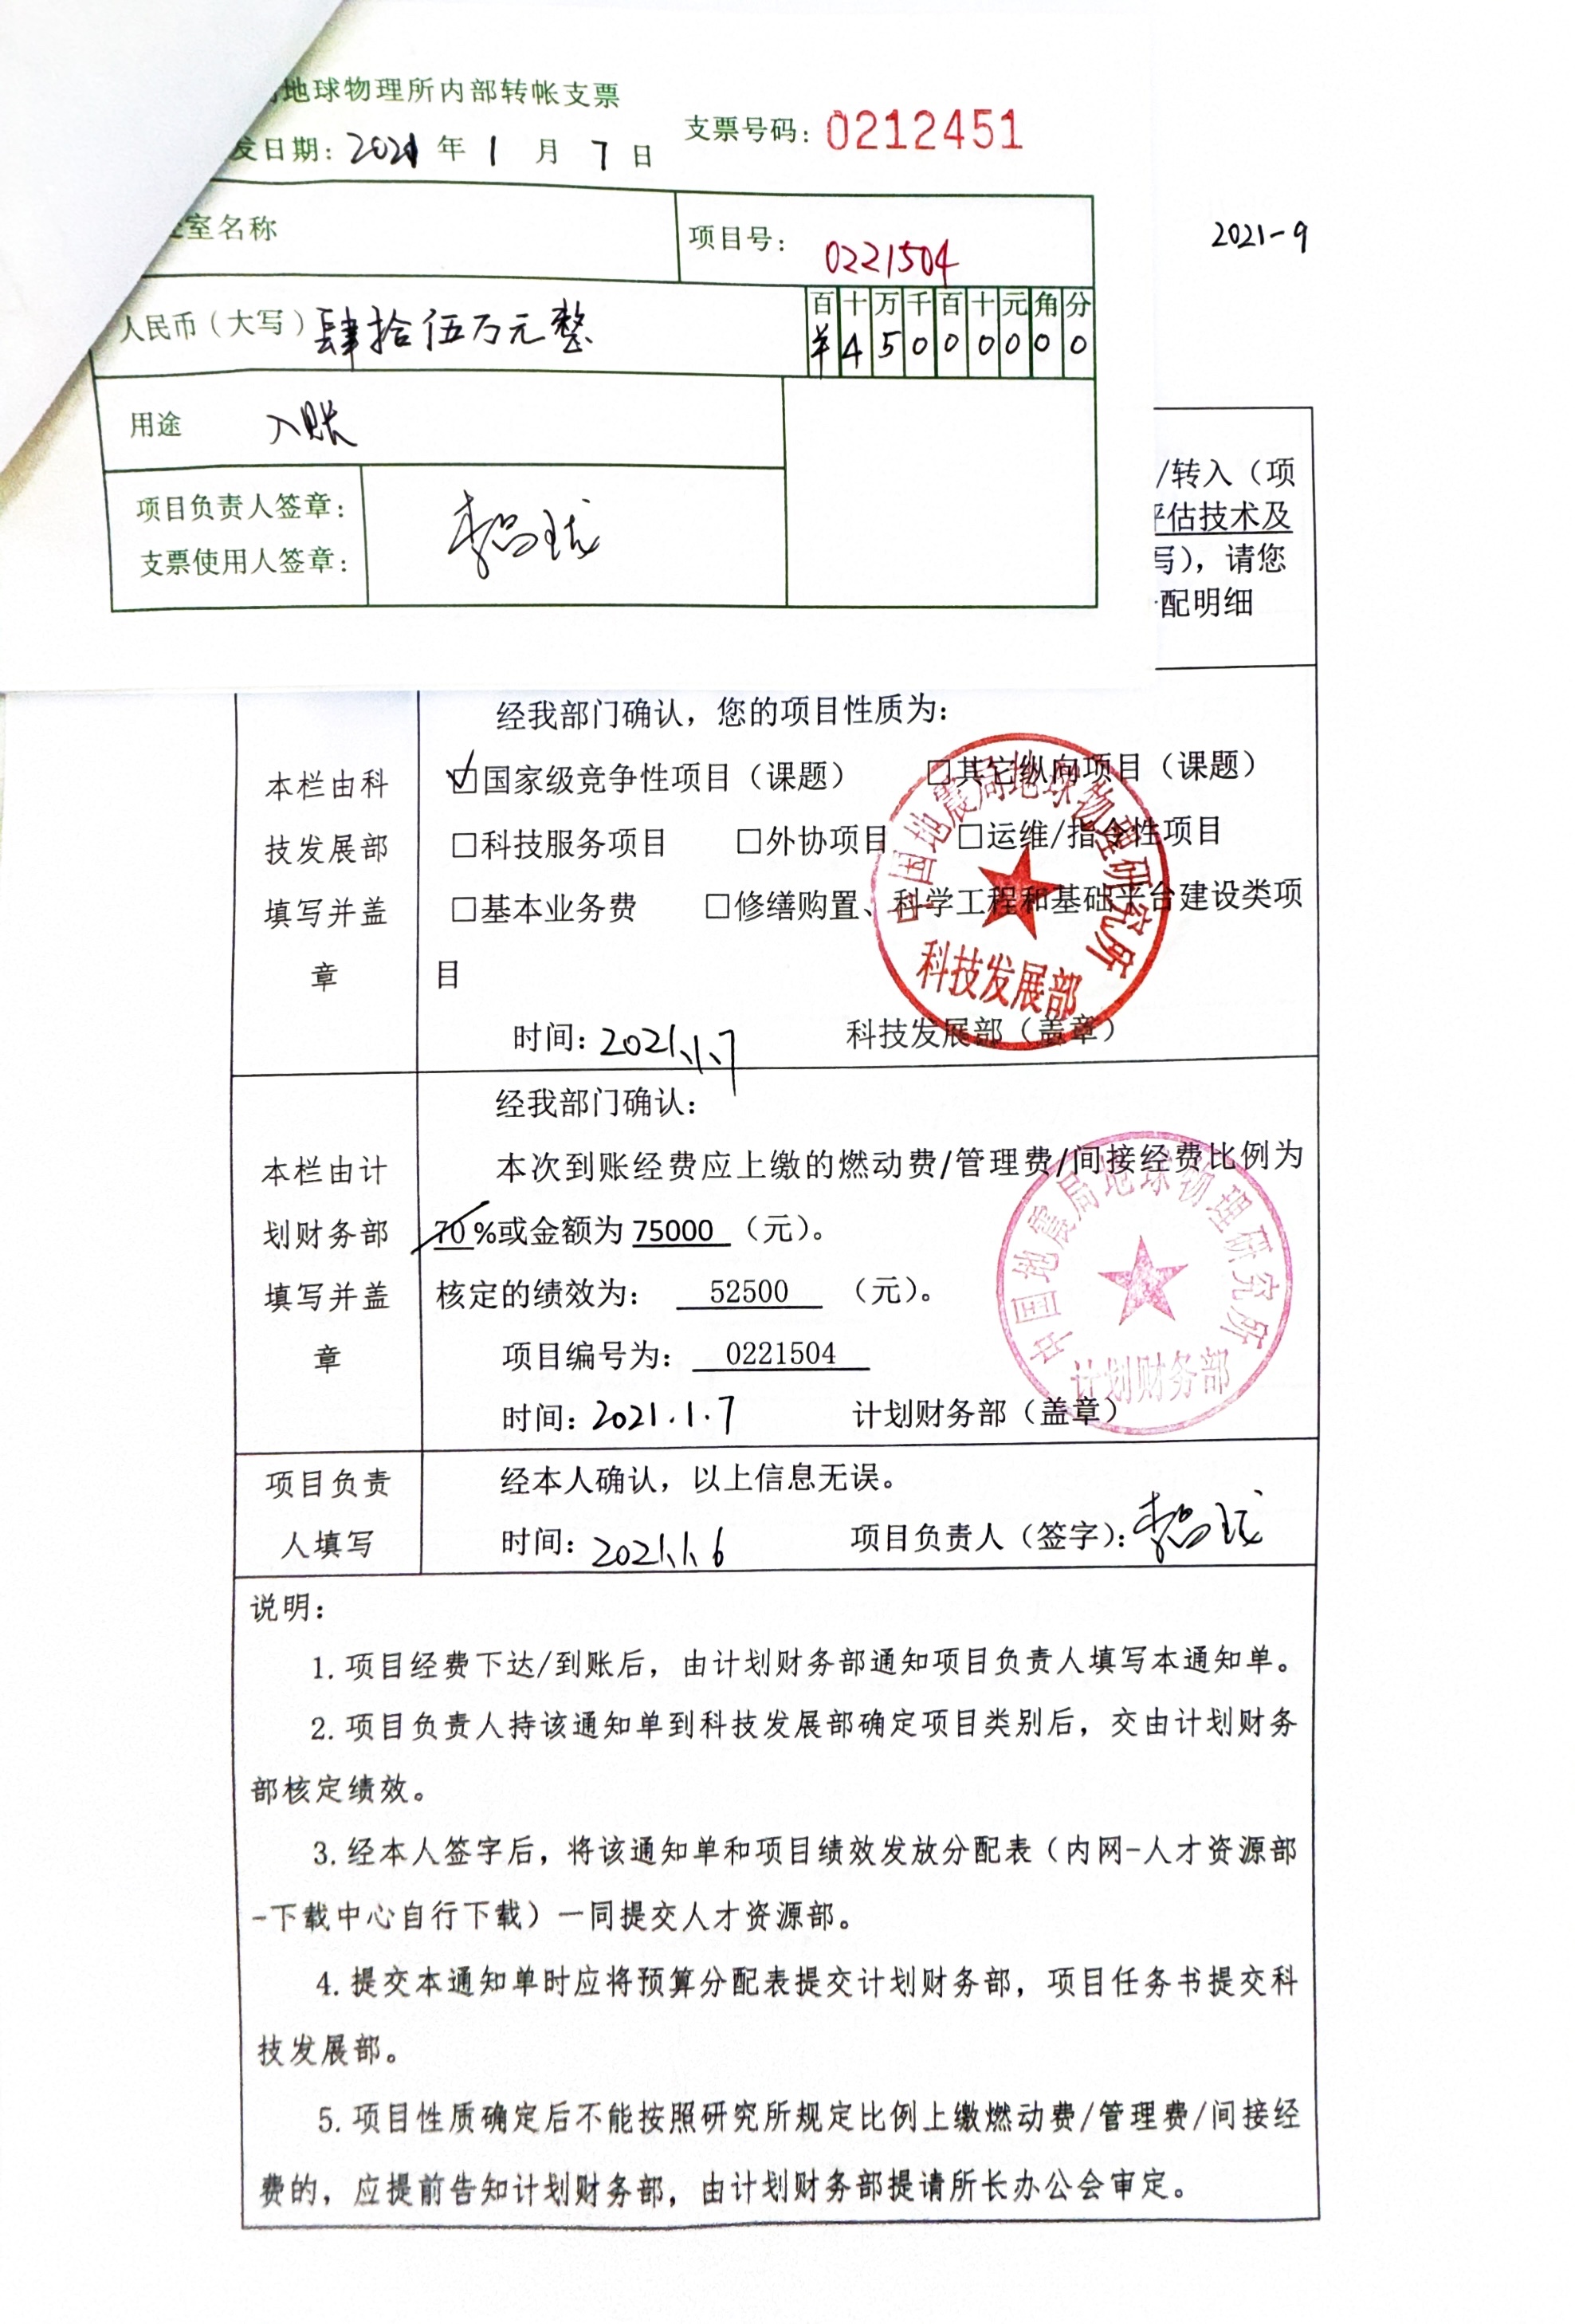 地球物理所内部转帐支票
支票号码：0212451
发日期：2021年1月7日
2021-9
室名称
项目号：0221504
人民币（大写）肆拾伍万元整
百十万千百十元角分
¥45000000
用途 入账
项目负责人签章：
支票使用人签章：
/转入（项
评估技术及
写），请您
配明细
经我部门确认，您的项目性质为：
本栏由科技发展部填写并盖章
☑国家级竞争性项目（课题） □其它纵向项目（课题）
□科技服务项目 □外协项目 □运维/指令性项目
□基本业务费 □修缮购置、科学工程和基础平台建设类项
目
时间：2021.1.7 科技发展部（盖章）
中国地震局地球物理研究所
科技发展部
经我部门确认：
本栏由计划财务部填写并盖章
本次到账经费应上缴的燃动费/管理费/间接经费比例为
70%或金额为75000（元）。
核定的绩效为：52500（元）。
项目编号为：0221504
时间：2021.1.7 计划财务部（盖章）
中国地震局地球物理研究所
计划财务部
项目负责人填写
经本人确认，以上信息无误。
时间：2021.1.6 项目负责人（签字）：
说明：
1.项目经费下达/到账后，由计划财务部通知项目负责人填写本通知单。
2.项目负责人持该通知单到科技发展部确定项目类别后，交由计划财务
部核定绩效。
3.经本人签字后，将该通知单和项目绩效发放分配表（内网-人才资源部
-下载中心自行下载）一同提交人才资源部。
4.提交本通知单时应将预算分配表提交计划财务部，项目任务书提交科
技发展部。
5.项目性质确定后不能按照研究所规定比例上缴燃动费/管理费/间接经
费的，应提前告知计划财务部，由计划财务部提请所长办公会审定。